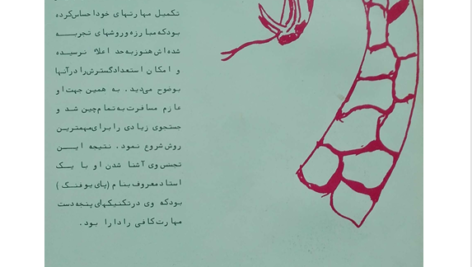 تکمیل مهارتهای خود احساس کرده
بود که مبارزه و روشهای تجربه
شده اش هنوز به حد اعلا نرسیده
و امکان استعداد گسترش را در آنها
بوضوح می‌دید، به همین جهت او
عازم مسافرت به تمام چین شد و
جستجوی زیادی را برای مهمترین
روش شروع نمود. نتیجه این
تجسس وی آشنا شدن او با یک
استاد معروف بنام (پای یوفنگ)
بود که وی در تکنیکهای پنجه دست
مهارت کافی را دارا بود.